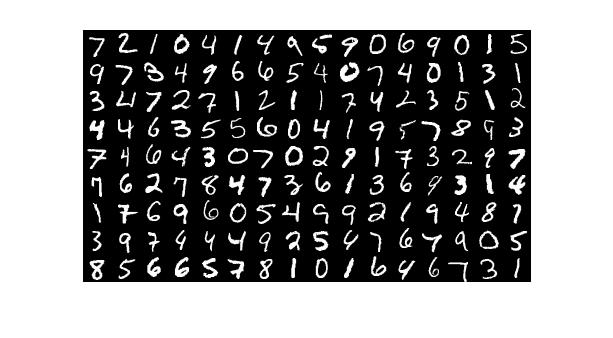 7 2 1 0 4 1 4 9 5 9 0 6 9 0 1 5
9 7 3 4 9 6 6 5 4 0 7 4 0 1 3 1
3 4 7 2 7 1 2 1 1 7 4 2 3 5 1 2
4 4 6 3 5 5 6 0 4 1 9 5 7 8 9 3
7 4 6 4 3 0 7 0 2 9 1 7 3 2 9 7
7 6 2 7 8 4 7 3 6 1 3 6 9 3 1 4
1 7 6 9 6 0 5 4 9 9 2 1 9 4 8 7
3 9 7 4 4 4 9 2 5 4 7 6 7 9 0 5
8 5 6 6 5 7 8 1 0 1 6 4 6 7 3 1